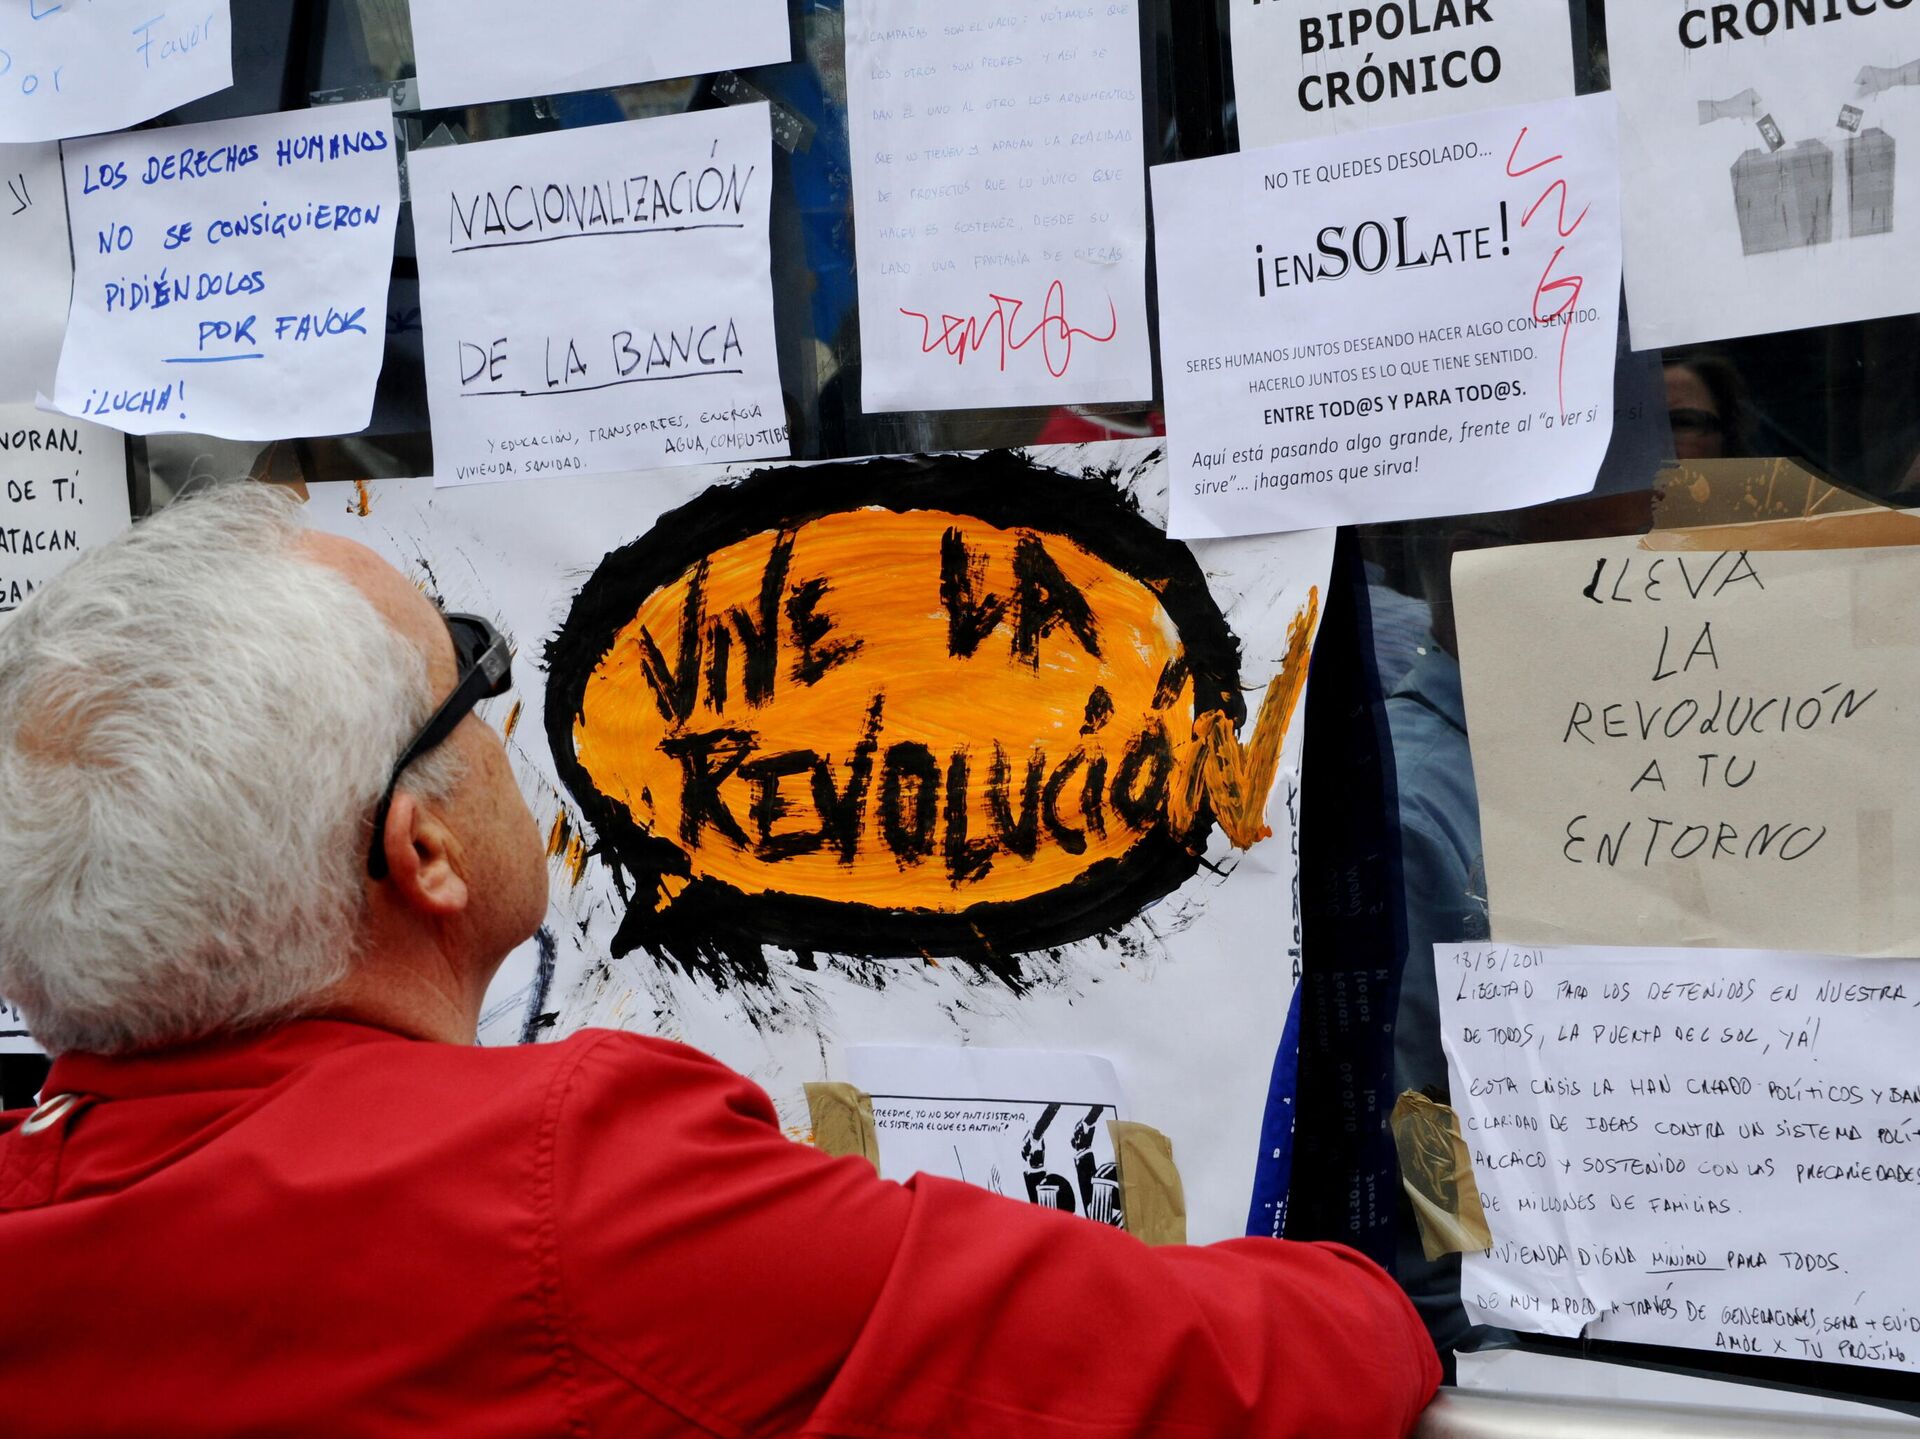 Por Favor
LOS DERECHOS HUMANOS
NO SE CONSIGUIERON
PIDIÉNDOLOS
POR FAVOR
¡LUCHA!
NACIONALIZACIÓN
DE LA BANCA
Y EDUCACIÓN, TRANSPORTES, ENERGÍA
AGUA, COMBUSTIBLE
VIVIENDA, SANIDAD.
CAMPAÑAS SON EL VACIO: VÓTANOS QUE
LOS OTROS SON PEORES Y ASÍ SE
DAN EL UNO AL OTRO LOS ARGUMENTOS
QUE NO TIENEN Y APAGAN LA REALIDAD
DE PROYECTOS QUE LO ÚNICO QUE
HACEN ES SOSTENER, DESDE SU
LADO UNA FANTASÍA DE CIFRAS.
BIPOLAR
CRÓNICO
CRÓNICO
NO TE QUEDES DESOLADO...
¡ENSOLATE!
SERES HUMANOS JUNTOS DESEANDO HACER ALGO CON SENTIDO.
HACERLO JUNTOS ES LO QUE TIENE SENTIDO.
ENTRE TOD@S Y PARA TOD@S.
Aquí está pasando algo grande, frente al "a ver si
sirve"... ¡hagamos que sirva!
NORAN.
DE TÍ.
ATACAN.
VIVE LA
REVOLUCIÓN
LLEVA
LA
REVOLUCIÓN
A TU
ENTORNO
CREEDME, YO NO SOY ANTISISTEMA,
ES EL SISTEMA EL QUE ES ANTIMÍ!
18/5/2011
LIBERTAD PARA LOS DETENIDOS EN NUESTRA,
DE TODOS, LA PUERTA DEL SOL, YÁ!
ESTA CRISIS LA HAN CREADO POLÍTICOS Y BAN
CLARIDAD DE IDEAS CONTRA UN SISTEMA POLÍT
ARCAICO Y SOSTENIDO CON LAS PRECARIEDADES
DE MILLONES DE FAMILIAS.
VIVIENDA DIGNA MÍNIMO PARA TODOS.
DE MUY APOCO, A TRAVÉS DE GENERACIONES, SERÁ + EVID
AMOR X TU PRÓJIMO.